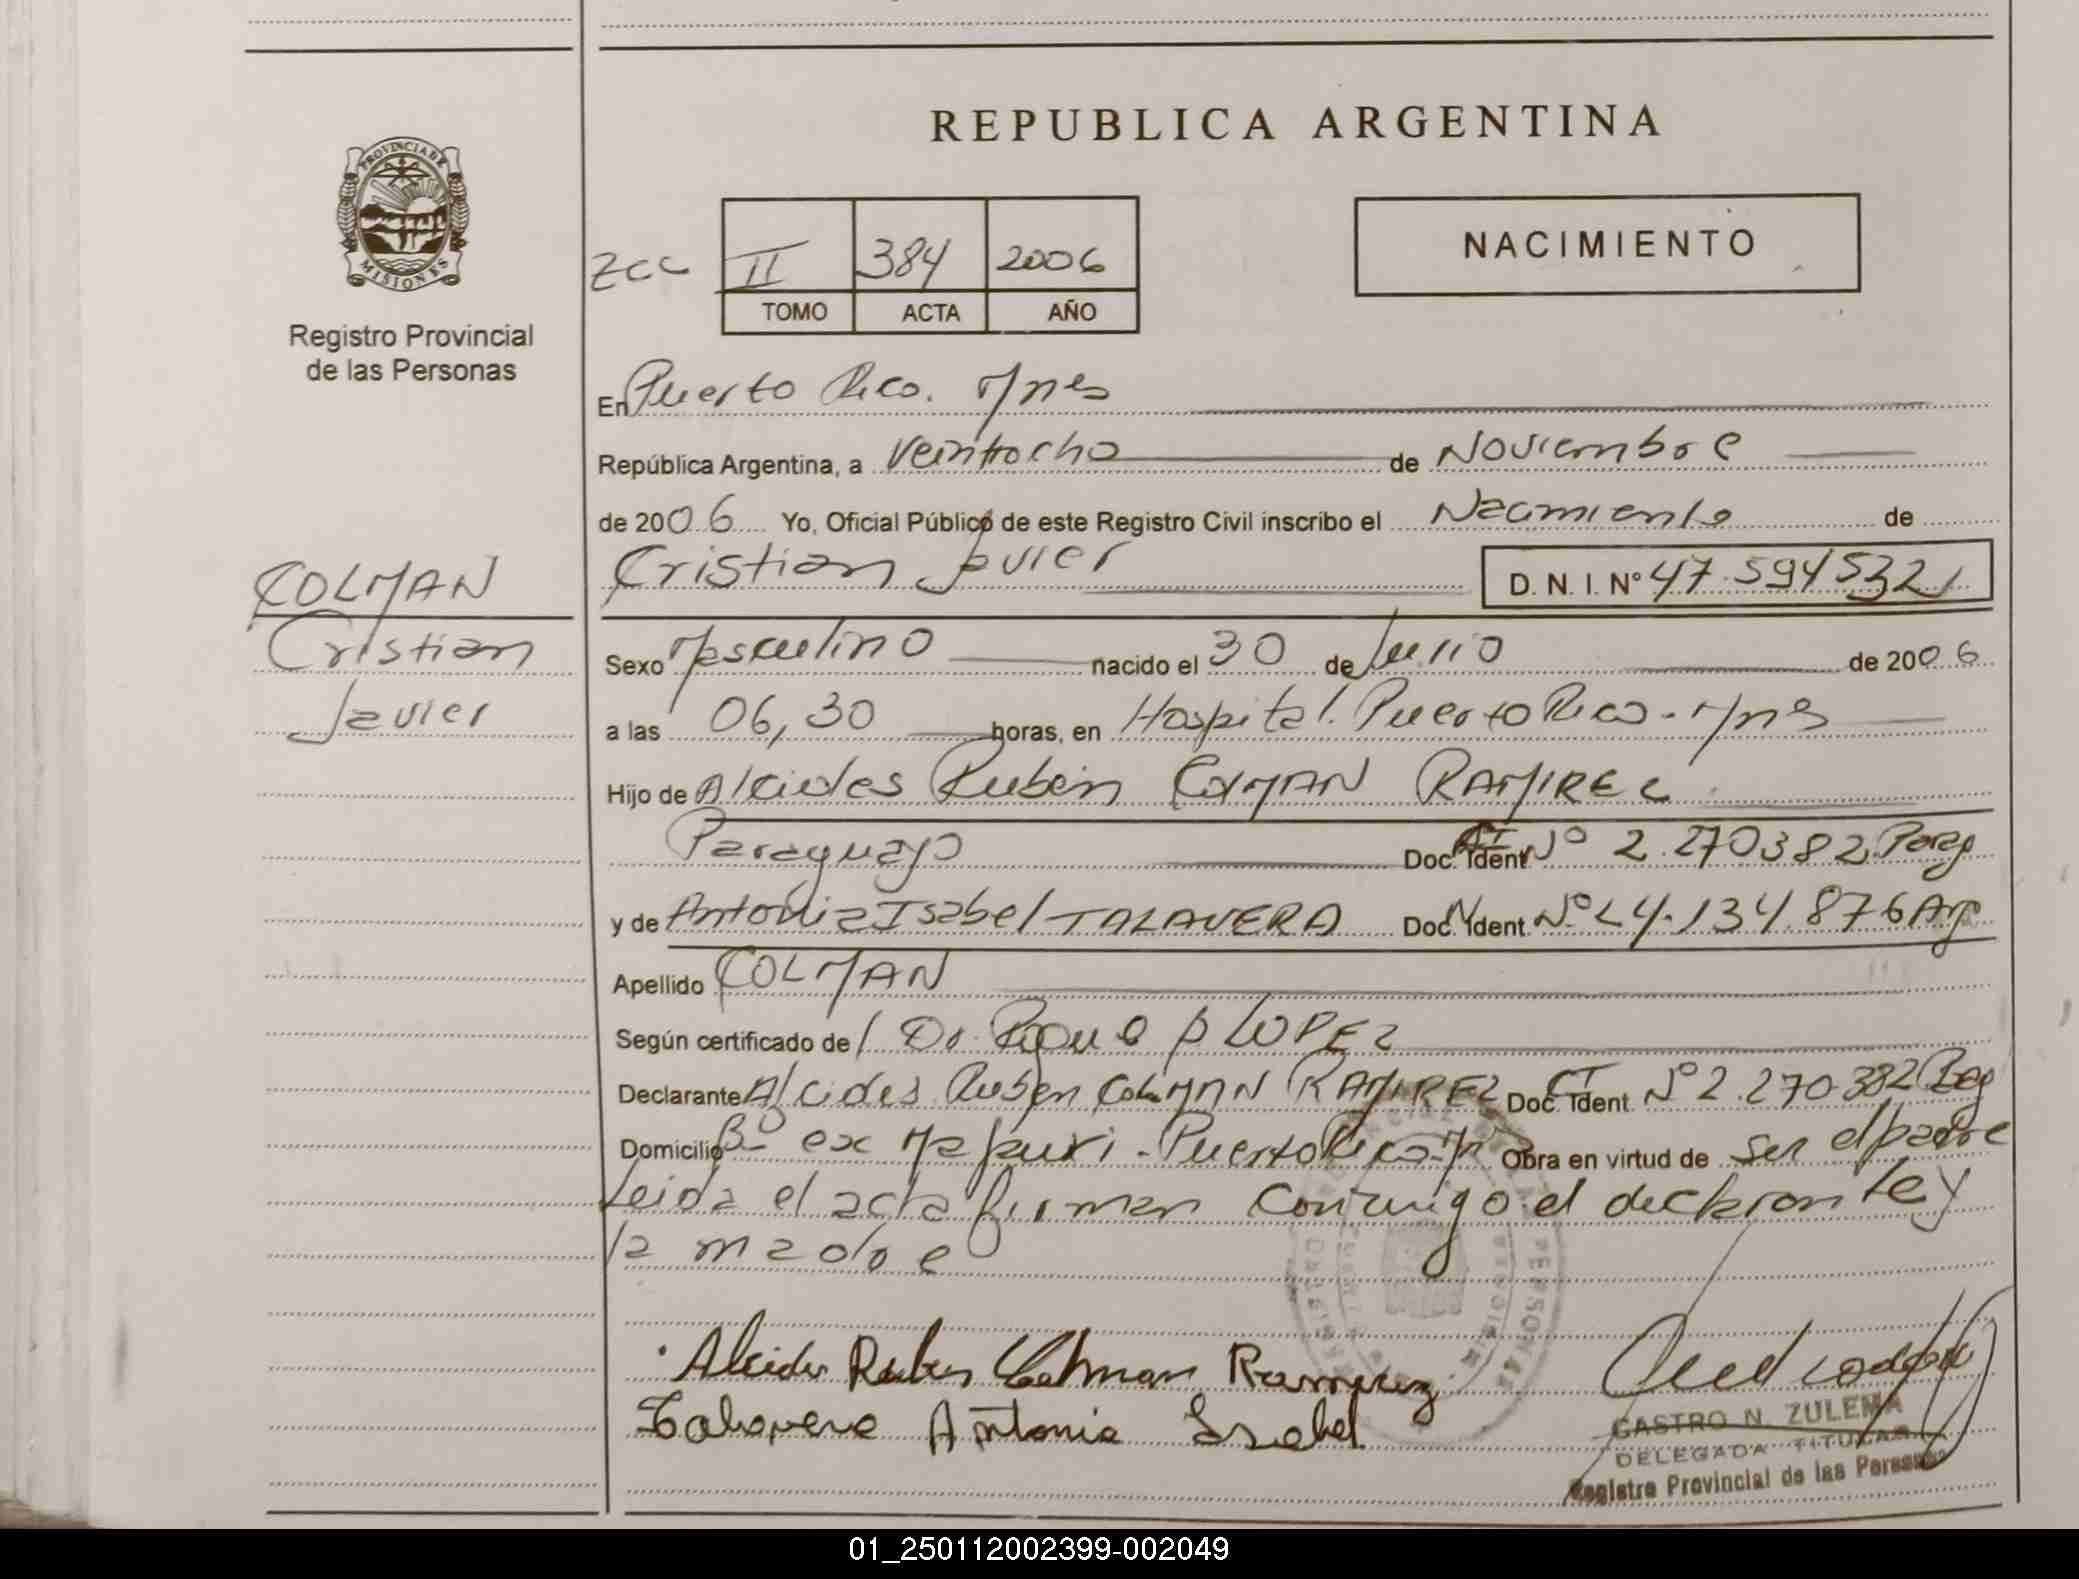 REPUBLICA ARGENTINA
PROVINCIA DE MISIONES
Registro Provincial
de las Personas
II 384 2006
TOMO ACTA AÑO
NACIMIENTO
En Puerto Rico. Mnes
República Argentina, a Veintiocho de Noviembre
de 2006 Yo, Oficial Público de este Registro Civil inscribo el Nacimiento de
COLMAN
Cristian
Javier
Cristian Javier D. N. I. Nº 47.594532
Sexo Masculino nacido el 30 de Julio de 2006
a las 06,30 horas, en Hospital. Puerto Rico - Mnes
Hijo de Alcides Rubén COLMAN RAMIREZ
Paraguayo Doc. Ident CI Nº 2.270382 Parag
y de Antonia Isabel TALAVERA Doc. Ident. Nº 24.134.876 Arg
Apellido COLMAN
Según certificado de Dr. Roque LOPEZ
Declarante Alcides Ruben COLMAN RAMIREZ Doc. Ident CI Nº 2.270.382
Domicilio Bº ex Puerto Rico Obra en virtud de ser el padre
Leida el acta firman conmigo el declarante y
la madre
Alcides Ruben Colman Ramirez
Talavera Antonia Isabel
CASTRO N. ZULEMA
DELEGADA TITULAR
Registro Provincial de las Personas
01_250112002399-002049